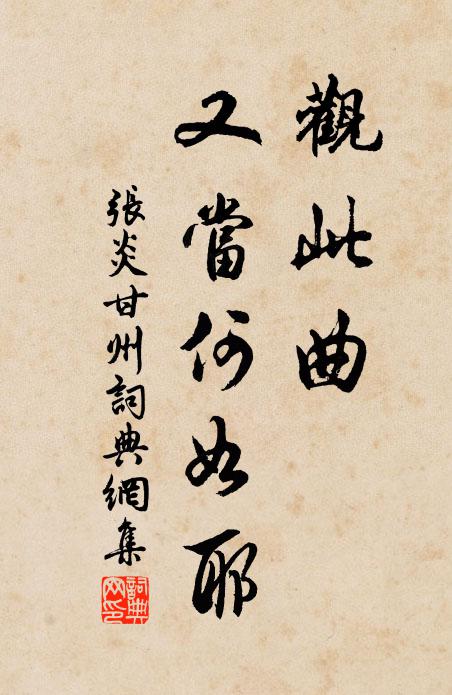 觀此曲
又當何如耶
張炎甘州詞典網集
詞典网印